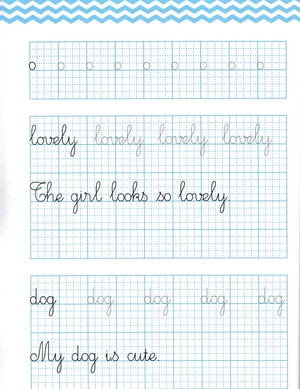 o o o o o o o o o
lovely lovely lovely lovely
The girl looks so lovely.
dog dog dog dog dog
My dog is cute.